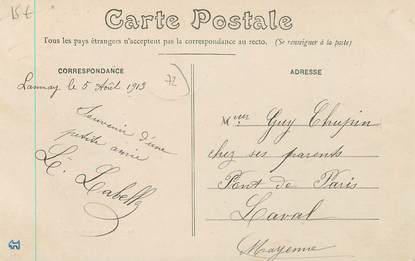 15 €
Carte Postale
Tous les pays étrangers n'acceptent pas la correspondance au recto. (Se renseigner à la poste)
CORRESPONDANCE
Lannay le 5 Août 1913
72
Souvenir d'une
petite amie
L. Labell
ADRESSE
Mr Guy Chupin
chez ses parents
Pont de Paris
Laval
Mayenne